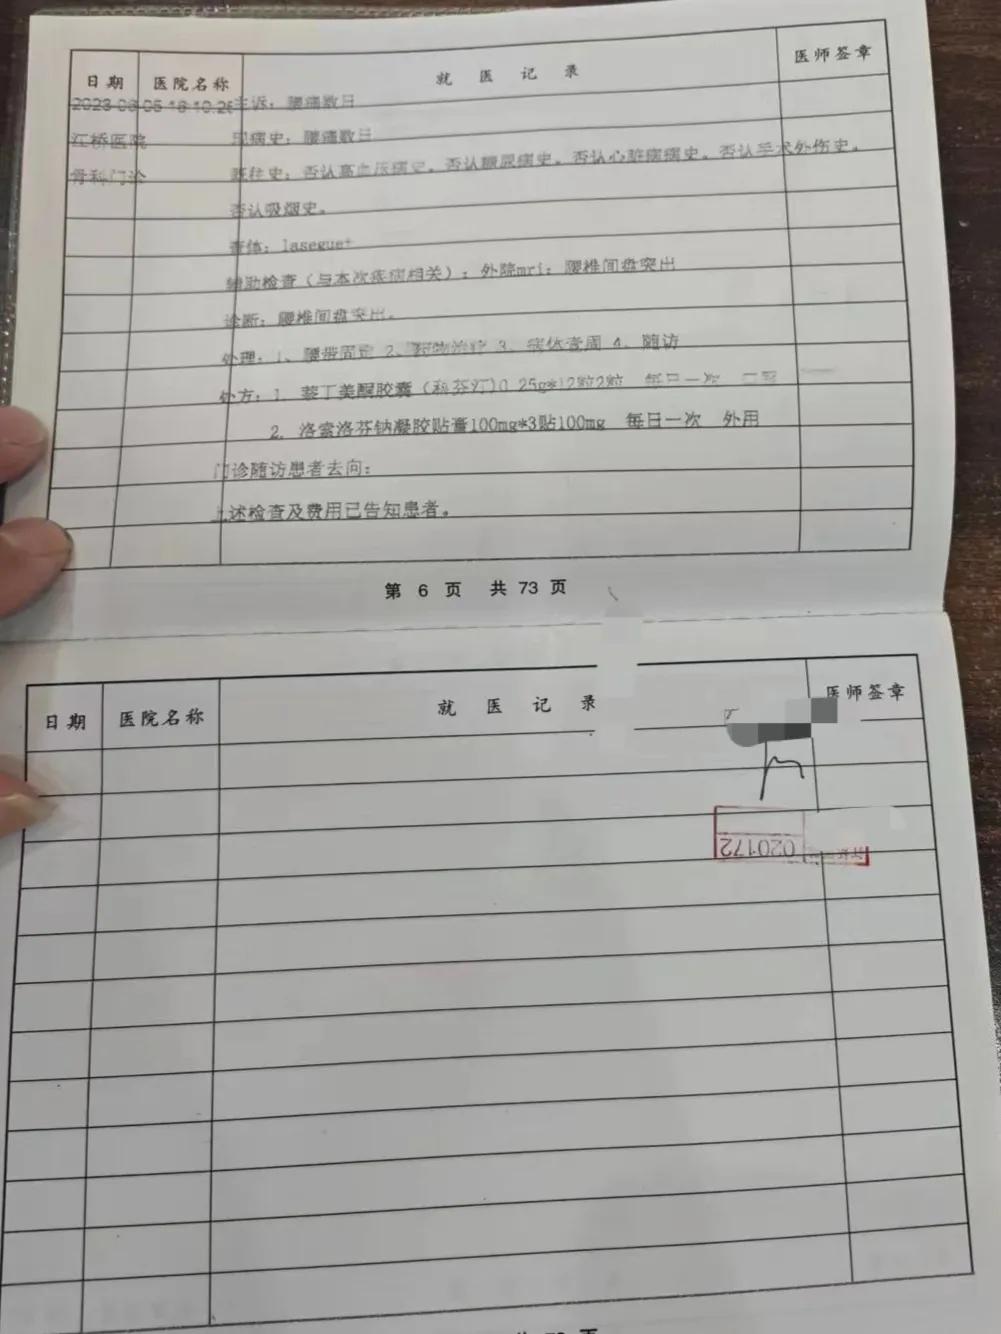 日期 医院名称 就医记录 医师签章
2023-06-05 16:10:26 主诉：腰痛数日
江桥医院 现病史：腰痛数日
骨科门诊 既往史：否认高血压病史。否认糖尿病史。否认心脏病病史。否认手术外伤史。
否认吸烟史。
查体：lasegue+
辅助检查（与本次疾病相关）：外院mri：腰椎间盘突出
诊断：腰椎间盘突出。
处理：1、腰带固定 2、药物治疗 3、病休壹周 4、随访
处方：1. 萘丁美酮胶囊 0.25g*12粒2粒 每日一次 口服
2. 洛索洛芬钠凝胶贴膏100mg*3贴100mg 每日一次 外用
门诊随访患者去向：
上述检查及费用已告知患者。
第 6 页 共 73 页
日期 医院名称 就医记录 医师签章
020172